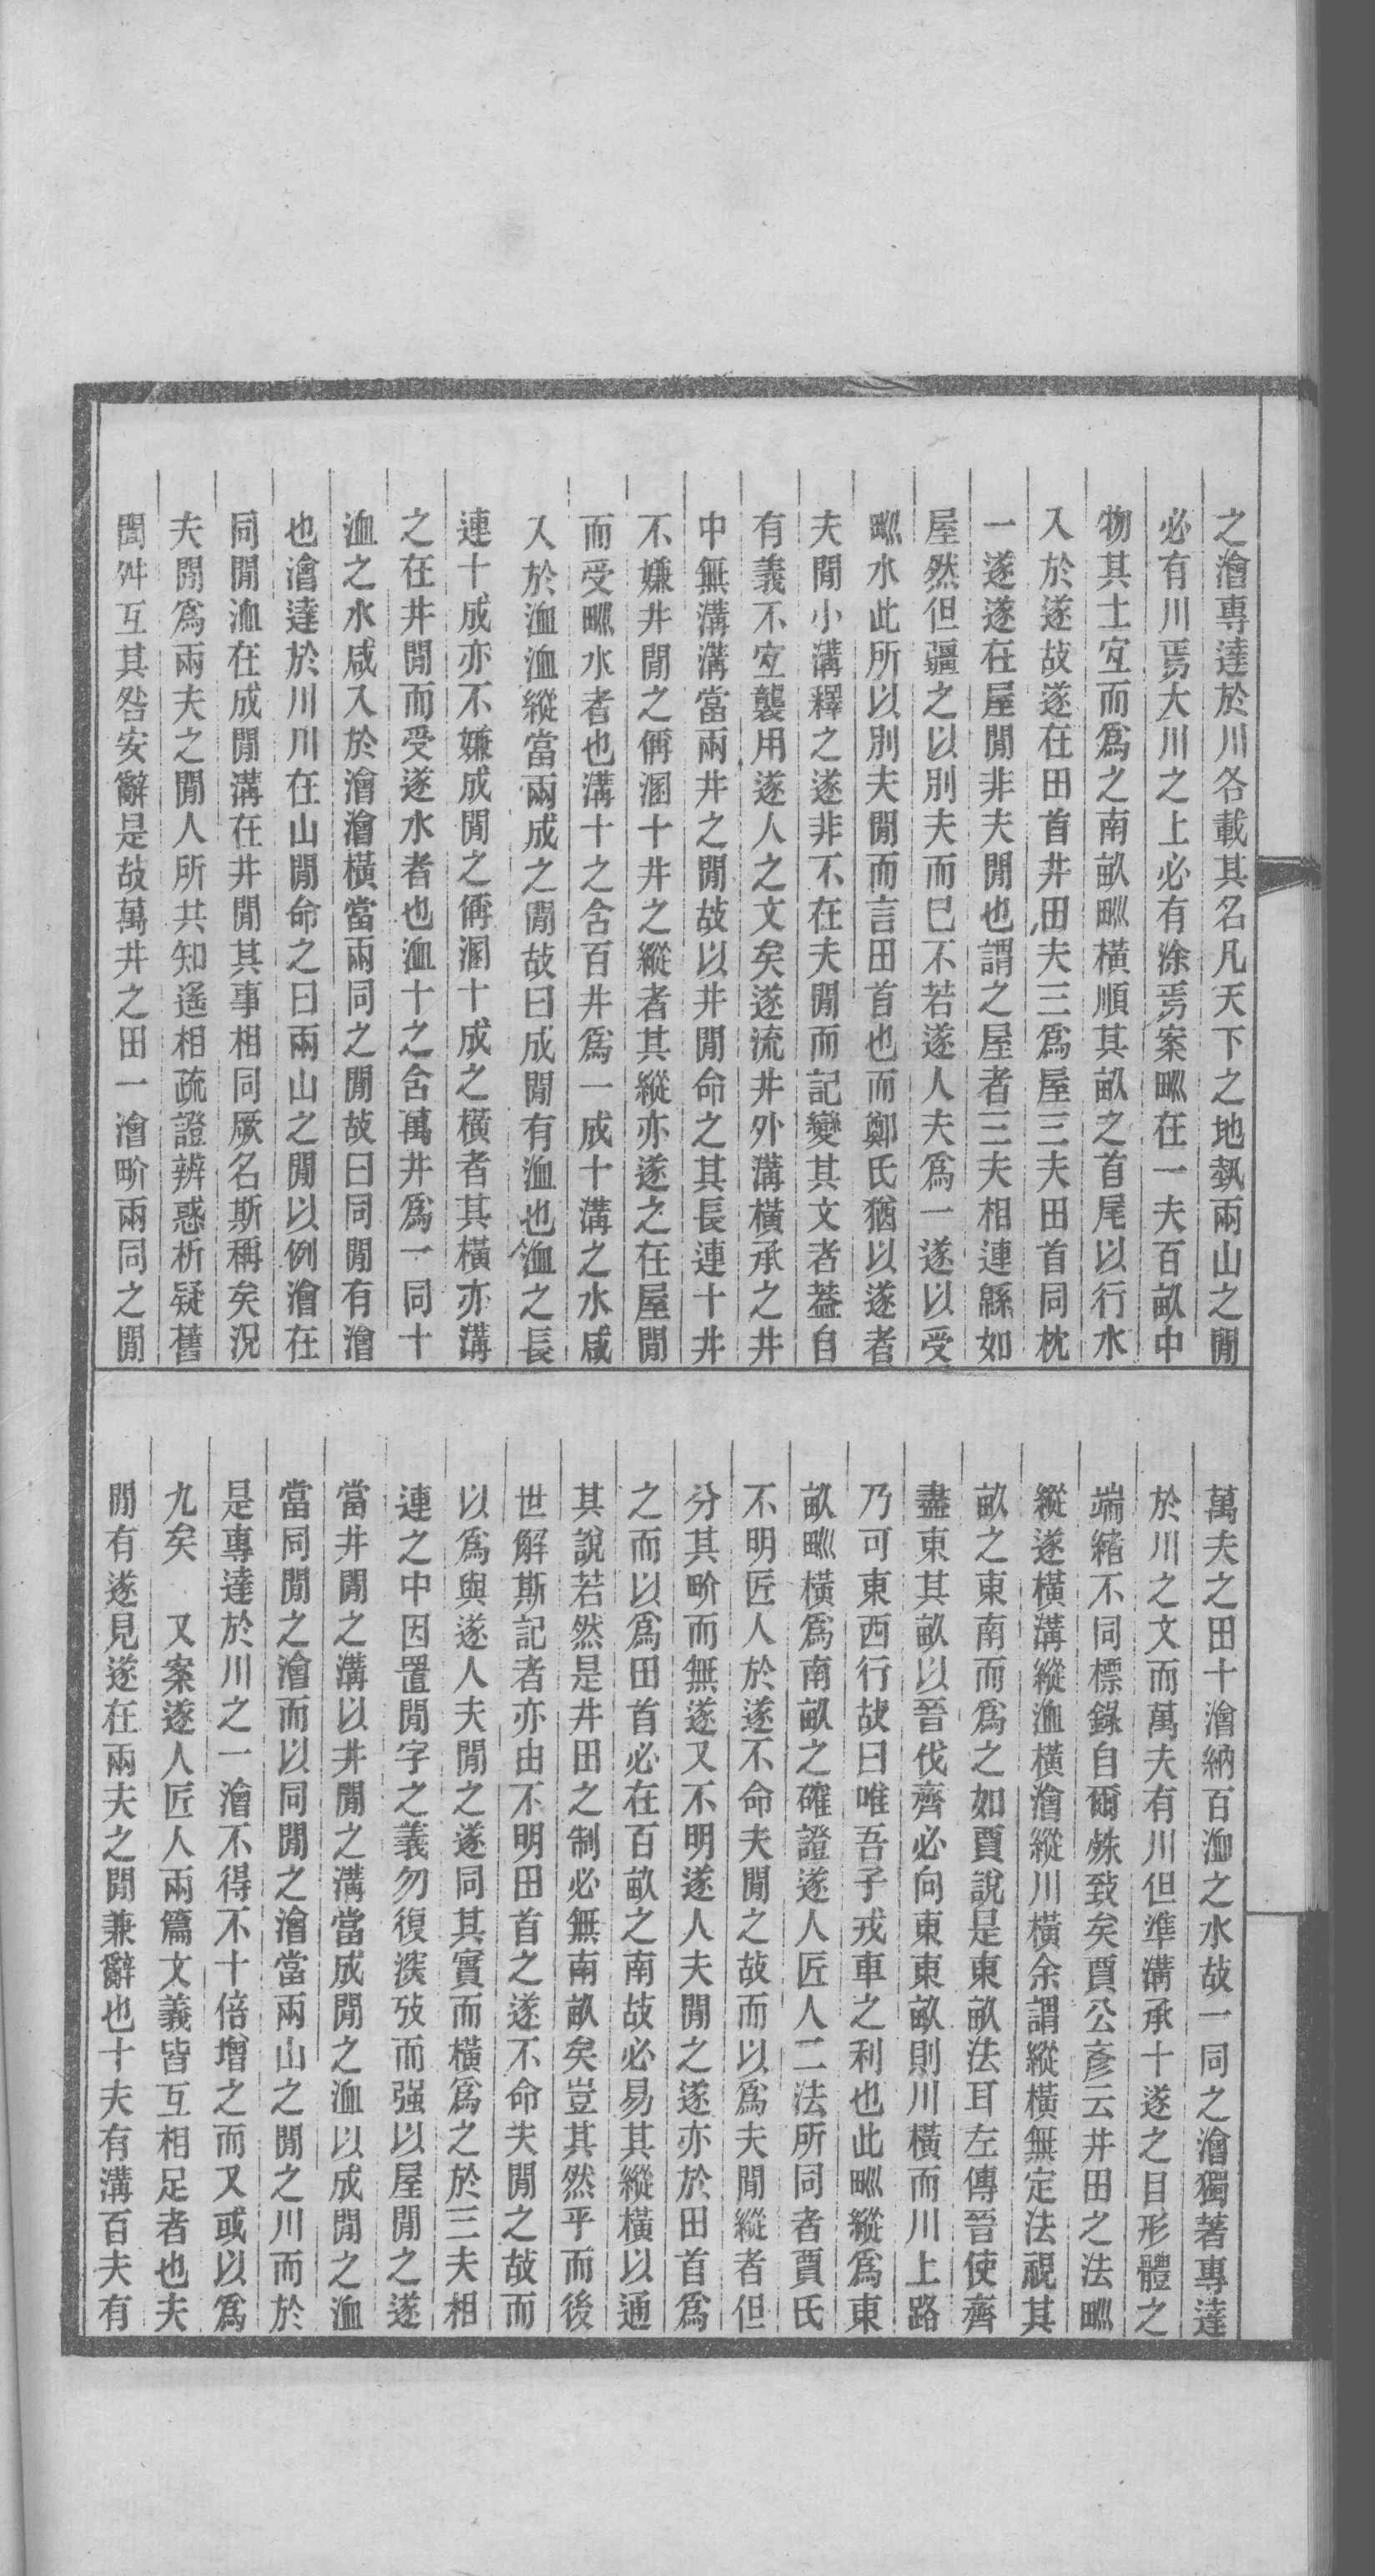 之澮專達於川各載其名凡天下之地埶兩山之閒
必有川焉大川之上必有涂焉案𤰕在一夫百畞中
物其土宐而爲之南畞𤰕橫順其畞之首尾以行水
入於遂故遂在田首井田夫三爲屋三夫田首同枕
一遂遂在屋閒非夫閒也謂之屋者三夫相連緜如
屋然但疆之以別夫而巳不若遂人夫爲一遂以受
𤰕水此所以別夫閒而言田首也而鄭氏猶以遂者
夫閒小溝釋之遂非不在夫閒而記變其文者葢自
有義不宐襲用遂人之文矣遂流井外溝橫承之井
中無溝溝當兩井之閒故以井閒命之其長連十井
不嫌井閒之偁溷十井之縱者其縱亦遂之在屋閒
而受𤰕水者也溝十之含百井爲一成十溝之水咸
入於洫洫縱當兩成之閒故曰成閒有洫也洫之長
連十成亦不嫌成閒之偁溷十成之橫者其橫亦溝
之在井閒而受遂水者也洫十之含萬井爲一同十
洫之水咸入於澮澮橫當兩同之閒故曰同閒有澮
也澮達於川川在山閒命之曰兩山之閒以例澮在
同閒洫在成閒溝在井閒其事相同厥名斯稱矣況
夫閒爲兩夫之閒人所共知遙相疏證辨惑析疑舊
聞舛互其咎安辭是故萬井之田一澮畍兩同之閒
萬夫之田十澮納百洫之水故一同之澮獨著專達
於川之文而萬夫有川但準溝承十遂之目形體之
端緒不同標錄自爾殊致矣賈公彥云井田之法𤰕
縱遂橫溝縱洫橫澮縱川橫余謂縱橫無定法視其
畞之東南而爲之如賈說是東畞法耳左傳晉使齊
盡東其畞以晉伐齊必向東東畞則川橫而川上路
乃可東西行故曰唯吾子戎車之利也此𤰕縱爲東
畞𤰕橫爲南畞之確證遂人匠人二法所同者賈氏
不明匠人於遂不命夫閒之故而以爲夫閒縱者但
分其畍而無遂又不明遂人夫閒之遂亦於田首爲
之而以爲田首必在百畞之南故必易其縱橫以通
其說若然是井田之制必無南畞矣豈其然乎而後
世解斯記者亦由不明田首之遂不命夫閒之故而
以爲與遂人夫閒之遂同其實而橫爲之於三夫相
連之中因置閒字之義勿復湥攷而强以屋閒之遂
當井閒之溝以井閒之溝當成閒之洫以成閒之洫
當同閒之澮而以同閒之澮當兩山之閒之川而於
是專達於川之一澮不得不十倍增之而又或以爲
九矣　又案遂人匠人兩篇文義皆互相足者也夫
閒有遂見遂在兩夫之閒兼辭也十夫有溝百夫有